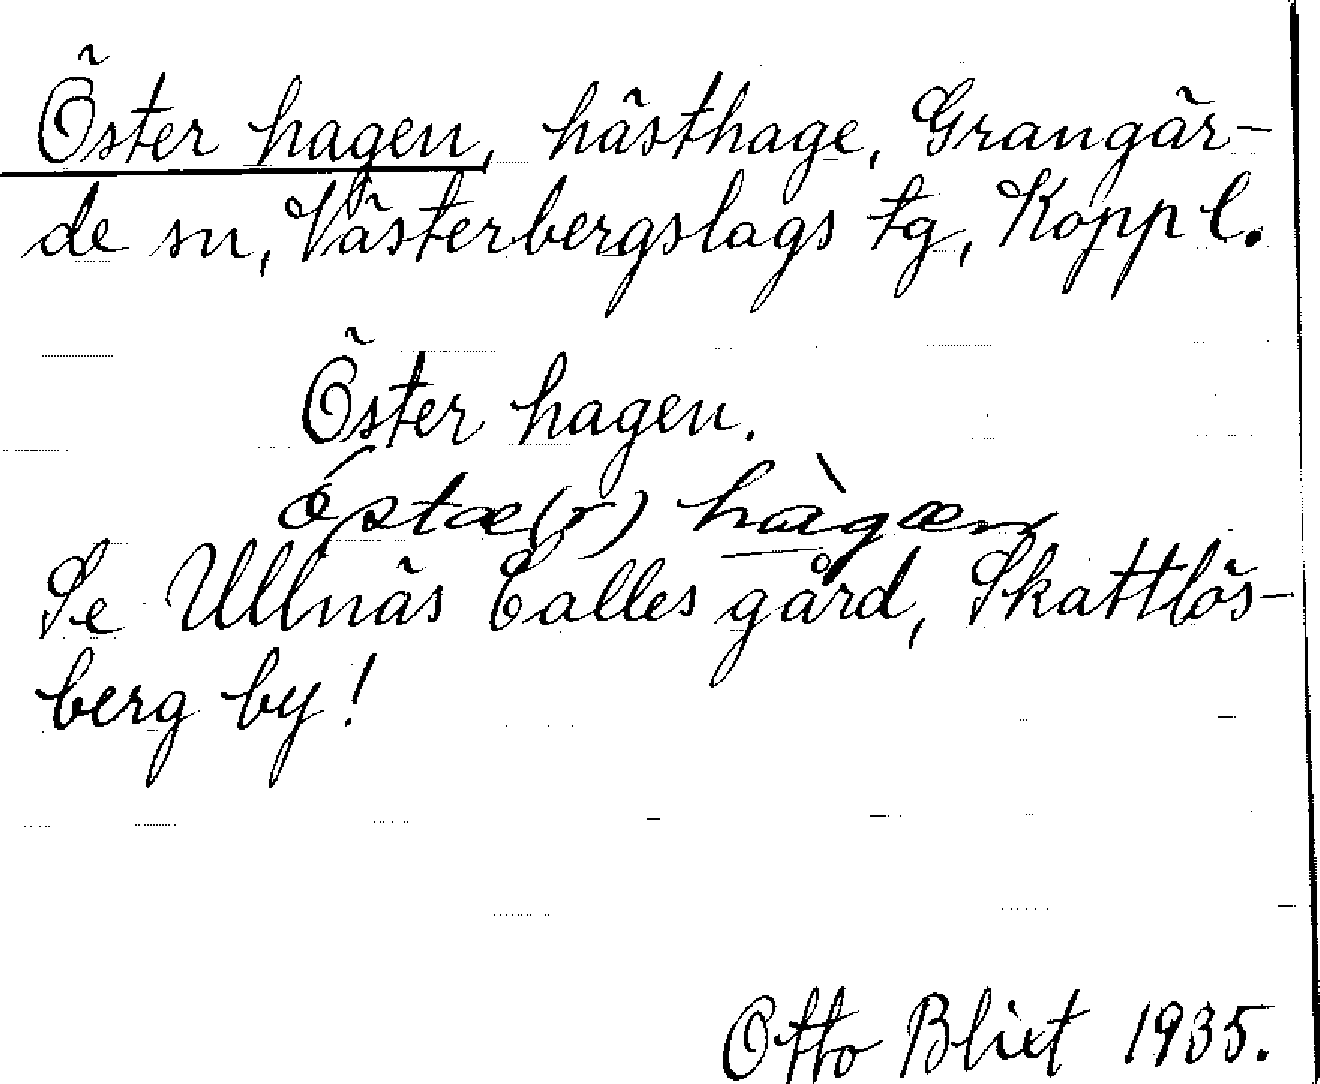 Öster hagen, hästhage, Grangär-
de sn, Västerbergslags tg, Kopp l.
Öster hagen.
östæ(r) hàgæn
Se Ullnäs Calles gård, Skattlös-
berg by!
Otto Blixt 1935.